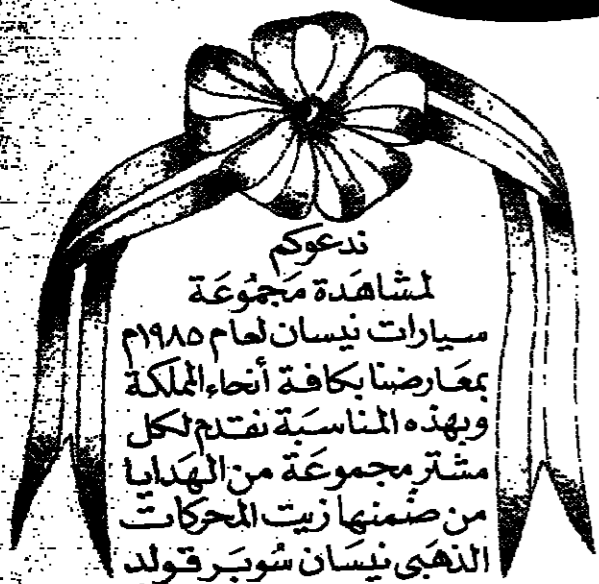 ندعوكم
لمشاهدة مجموعة
سيارات نيسان لعام ١٩٨٥م
بمعارضنا بكافة أنحاء المملكة
وبهذه المناسبة نقدم لكل
مشتر مجموعة من الهدايا
من ضمنها زيت المحركات
الذهبي نيسان سُوبَر قولد